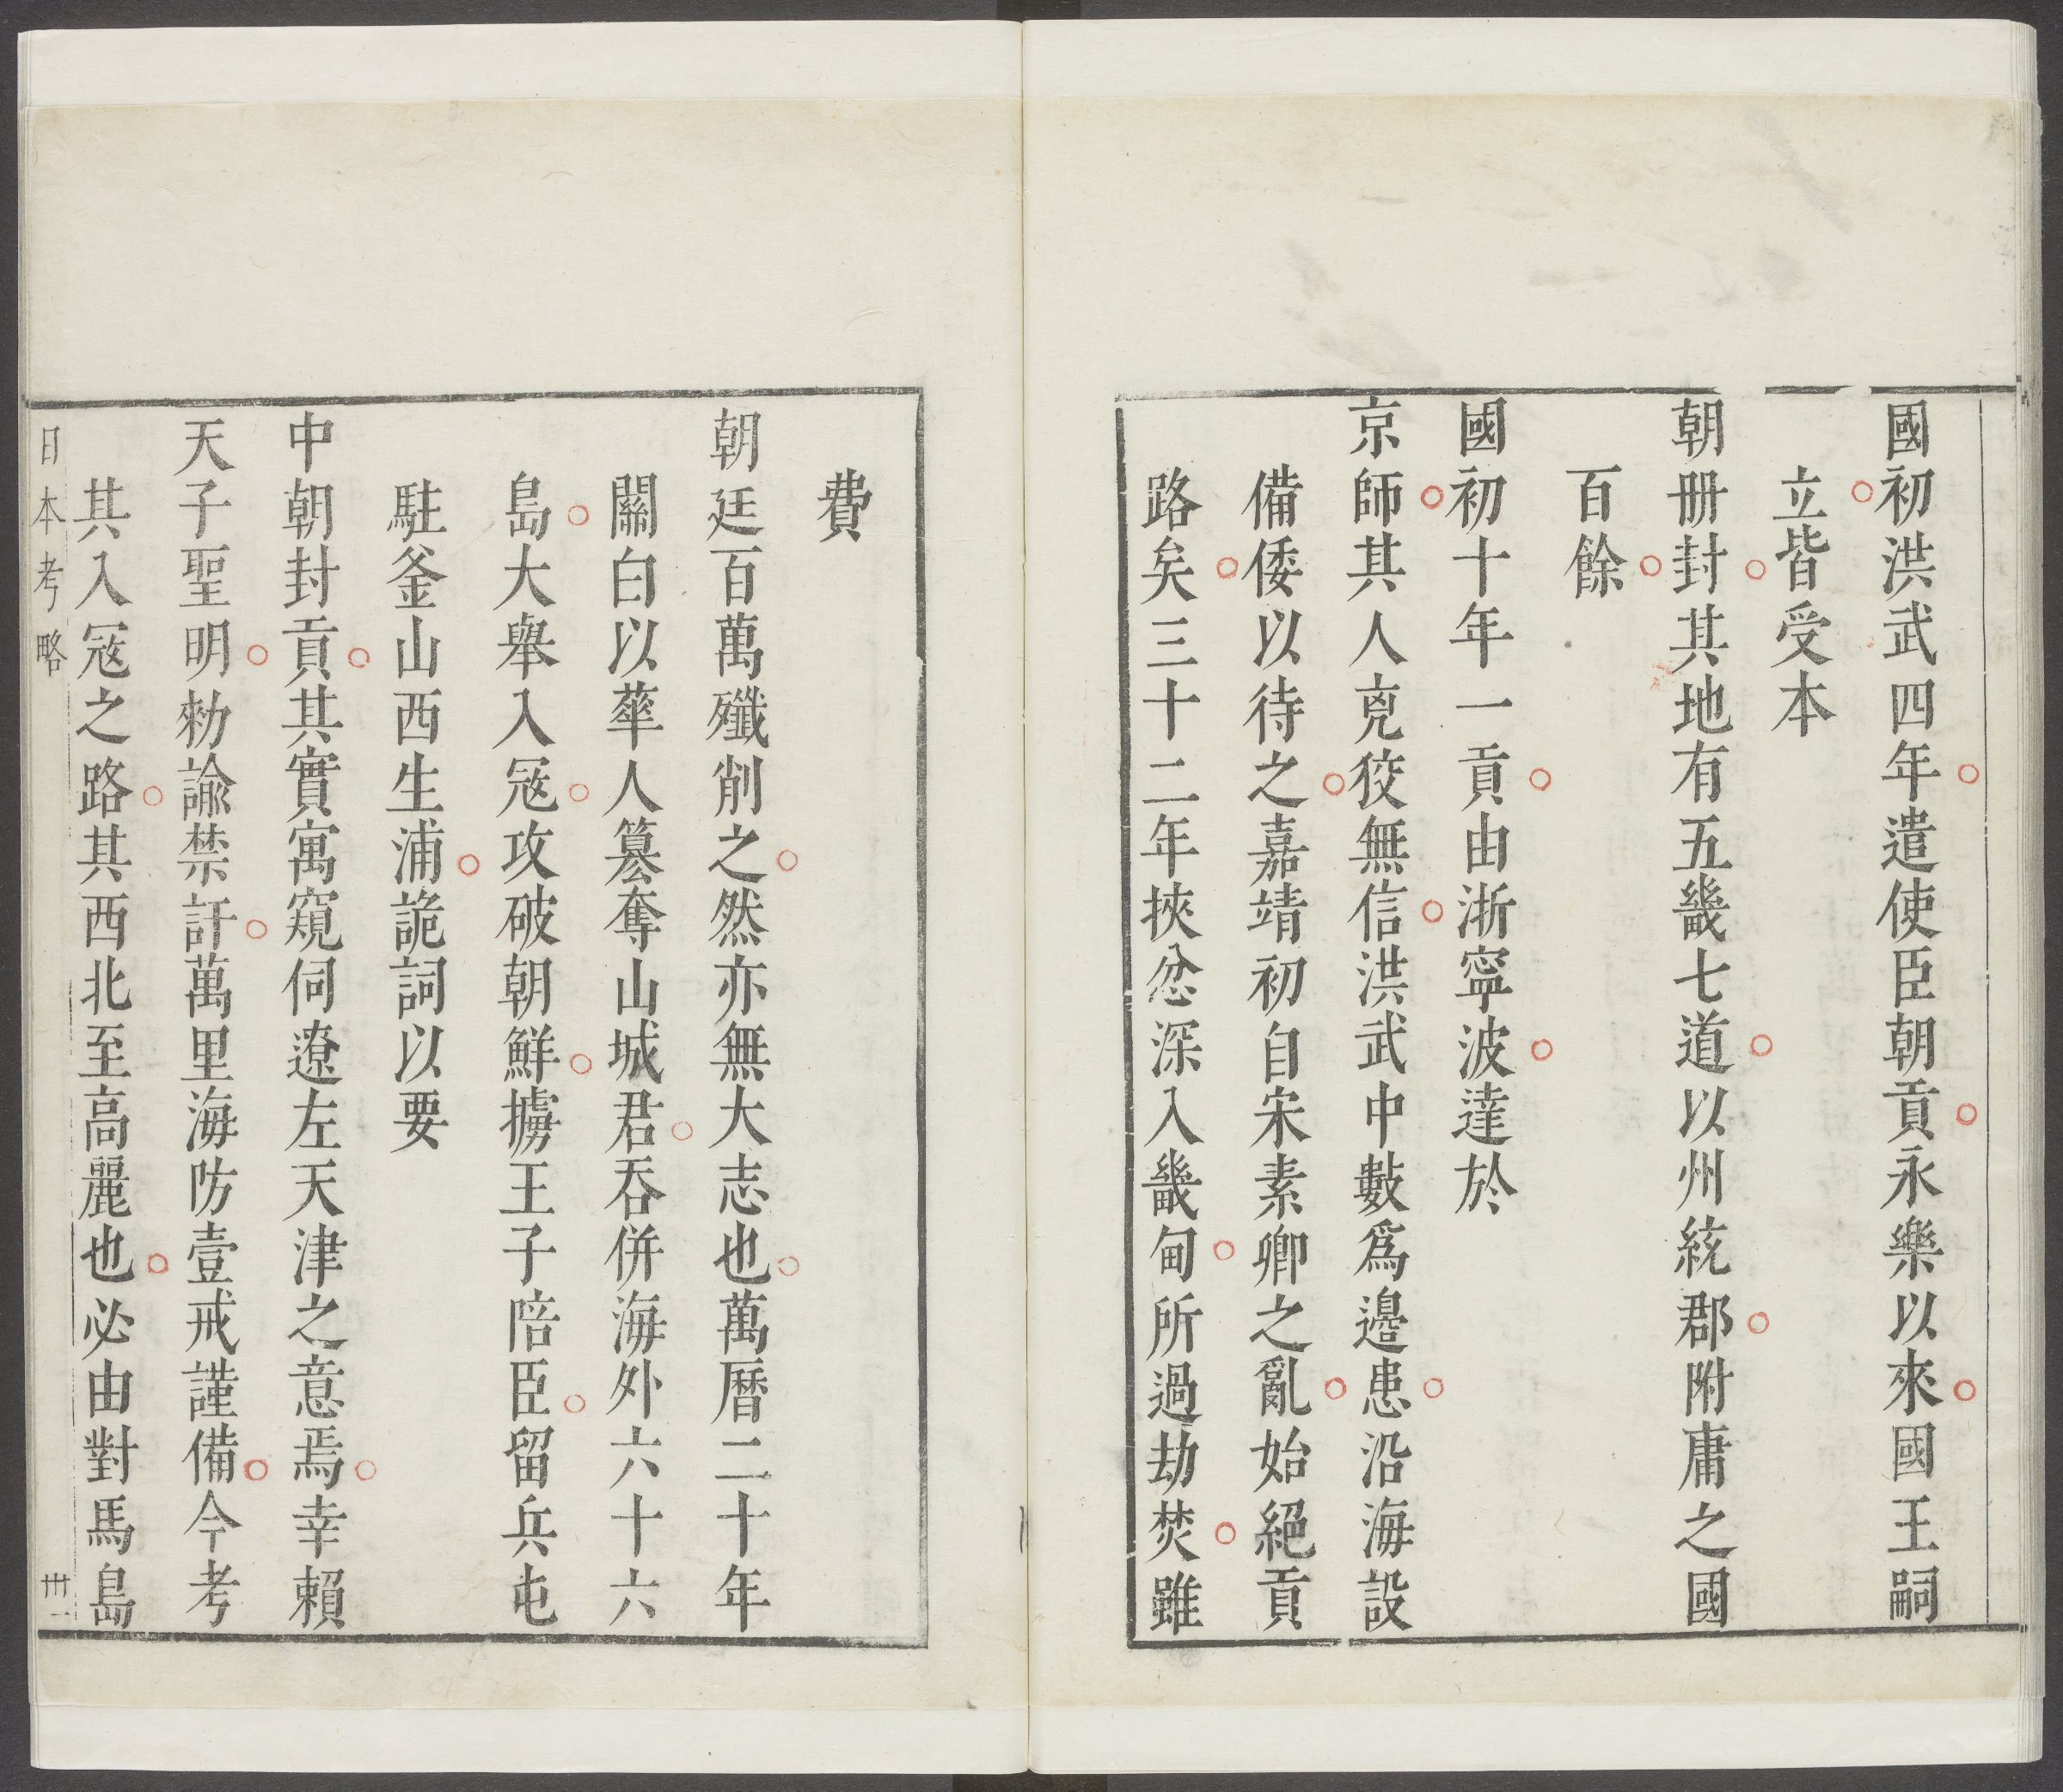 國初洪武四年遣使臣朝貢永樂以來國王嗣
立皆受本
朝冊封其地有五畿七道以州統郡附庸之國
百餘
國初十年一貢由浙寧波達於
京師其人兇狡無信洪武中數爲邊患沿海設
備倭以待之嘉靖初自宋素卿之亂始絕貢
路矣三十二年挾忿深入畿甸所過劫焚雖
費
朝廷百萬殲削之然亦無大志也萬曆二十年
關白以華人篡奪山城君吞併海外六十六
島大舉入寇攻破朝鮮擄王子陪臣留兵屯
駐釜山西生浦詭詞以要
中朝封貢其實寓窺伺遼左天津之意焉幸賴
天子聖明勑諭禁訐萬里海防壹戒謹備今考
其入寇之路其西北至高麗也必由對馬島
日本考略
卅一